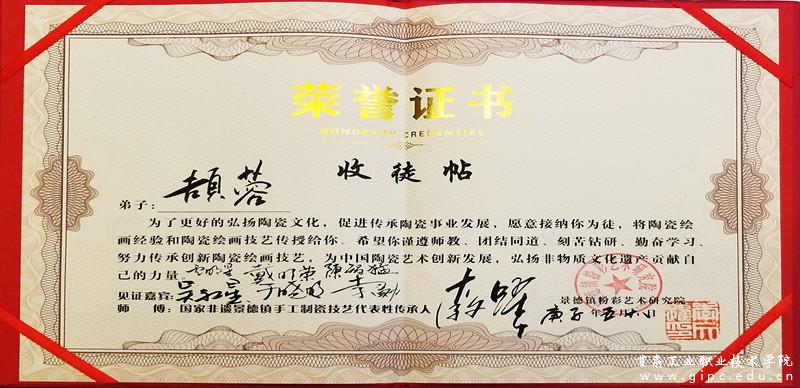 荣誉证书
HONORARY CREDENTIAL
收徒帖
弟子：颉蓉
为了更好的弘扬陶瓷文化，促进传承陶瓷事业发展，愿意接纳你为徒，将陶瓷绘
画经验和陶瓷绘画技艺传授给你。希望你谨遵师教、团结同道、刻苦钻研、勤奋学习、
努力传承创新陶瓷绘画技艺，为中国陶瓷艺术创新发展，弘扬非物质文化遗产贡献自
己的力量。
见证嘉宾：吴红星 李勤
景德镇粉彩艺术研究院
师 傅：国家非遗景德镇手工制瓷技艺代表性传承人
庚子 年 月 八
甘肃工业职业技术学院
www.gipc.edu.cn